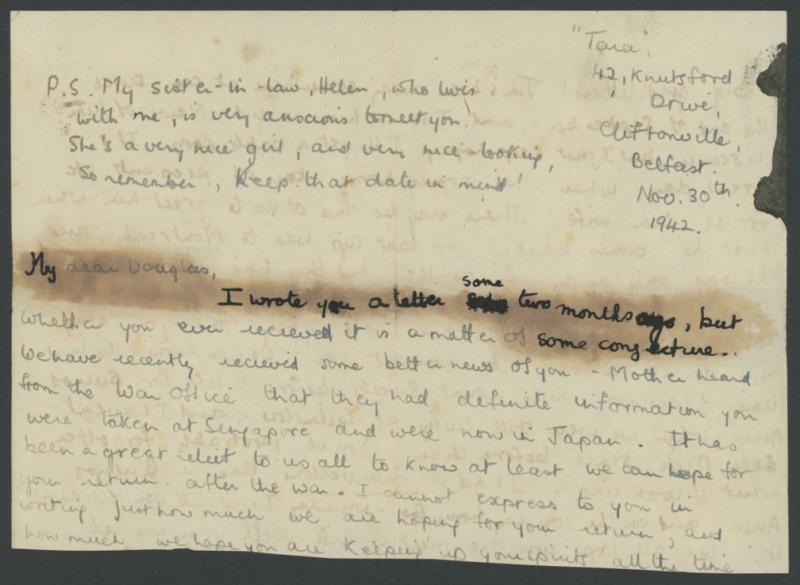 "Tara",
42, Knutsford
Drive,
Cliftonville,
Belfast.
Nov. 30th.
1942.
P.S. My sister-in-law, Helen, who lives
with me, is very anxious to meet you.
She's a very nice girl, and very nice-looking,
So remember, keep that date in mind!
My dear Douglas,
I wrote you a letter some two months ago, but
whether you ever recieved it is a matter of some conjecture..
We have recently recieved some better news of you - Mother heard
from the War Office that they had definite information you
were taken at Singapore and were now in Japan. It has
been a great relief to us all to know at least we can hope for
your return after the war. I cannot express to you in
writing just how much we are hoping for your return, and
how much we hope you are keeping up your spirits all the time